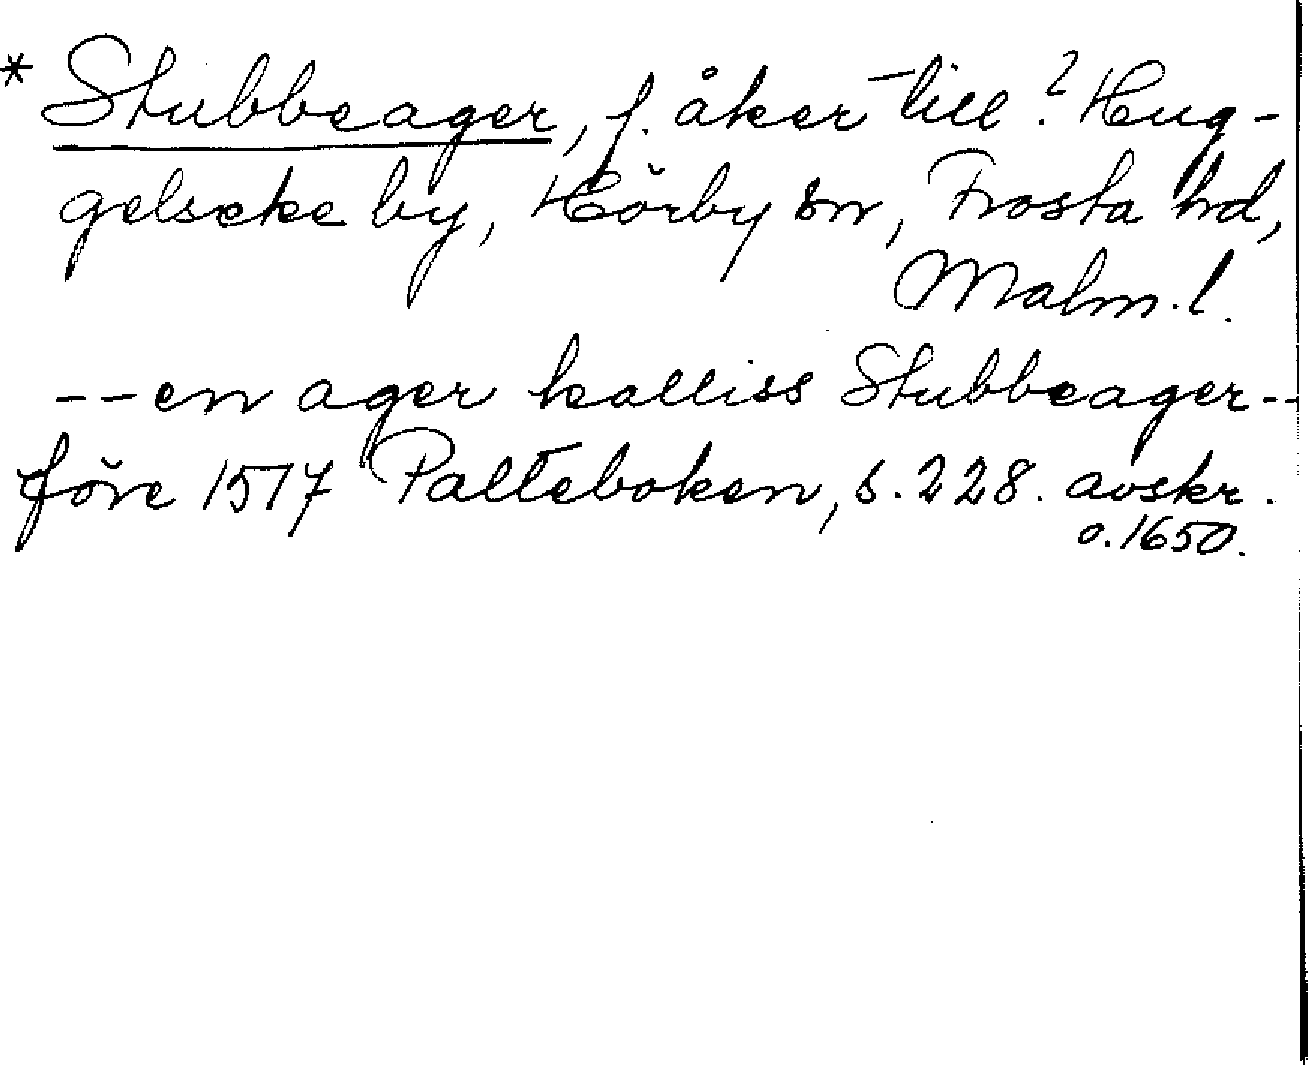 * Stubbeager, f. åker till ? Hug-
gelseke by, Hörby sn, Frosta hd,
Malm. l.
-- en ager kalliss Stubbeager --
före 1517 Palteboken, s. 228. avskr.
o. 1650.